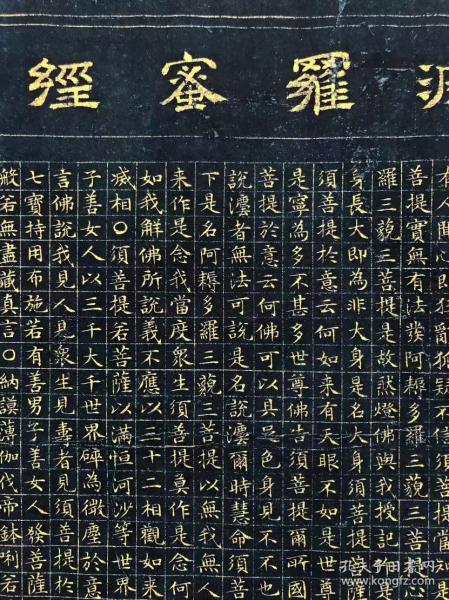 波羅蜜經
有人聞心即狂亂狐疑不信須菩提當知是
菩提實無有法發阿耨多羅三藐三菩提心
羅三藐三菩提是故然燈佛與我授記作是
身長大即為非大身是名大身須菩提菩薩
須菩提於意云何如來有天眼不如是世尊
是寧為多不甚多世尊佛告須菩提爾所國
菩提於意云何佛可以具足色身見不不也
說灋者無法可說是名說灋爾時慧命須菩
下是名阿耨多羅三藐三菩提以無我無人
來作是念我當度眾生須菩提莫作是念何
如我解佛所說義不應以三十二相觀如來
滅相〇須菩提若菩薩以滿恒河沙等世界
子善女人以三千大千世界碎為微塵於意
言佛說我見人見眾生見壽者見須菩提於
七寶持用布施若有善男子善女人發菩薩
般若無盡藏真言〇納謨薄伽伐帝鉢唎若
孔夫子旧书网
kongfz.com